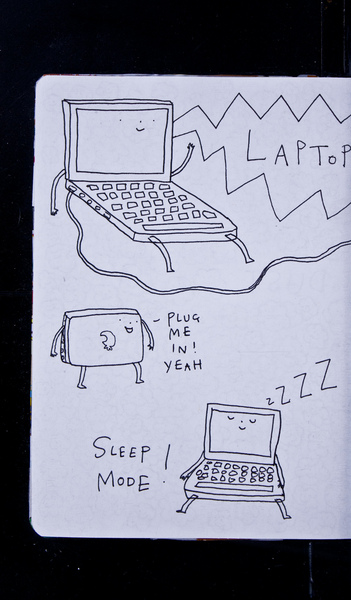 LAPTOP
PLUG
ME
IN!
YEAH
zZZZ
SLEEP
MODE!